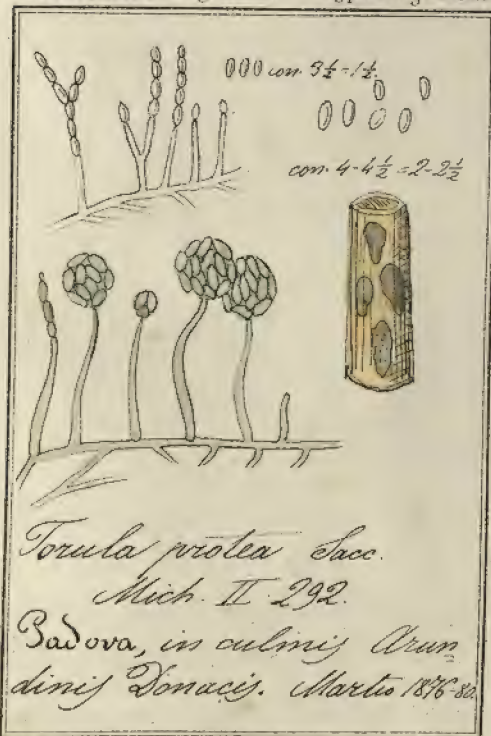 con. 3½ = 1½.
con. 4-4½ = 2-2½
Torula protea Sacc.
Mich. II. 292.
Padova, in culmis Arun
dinis Donacis. Martio 1876-80.